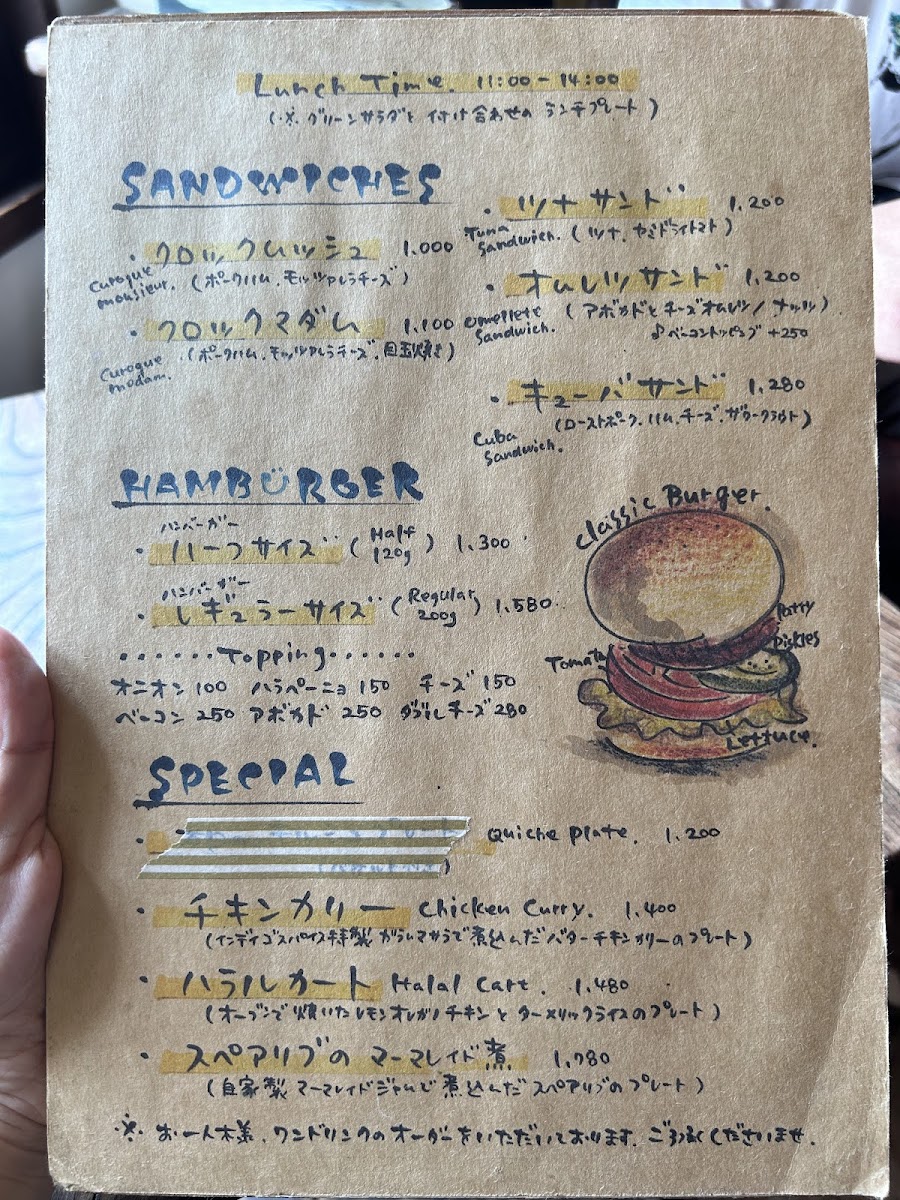 Lunch Time. 11:00 - 14:00
(※ グリーンサラダと付け合わせの ランチプレート)
SANDWICHES
・クロックムッシュ 1.000
Curoque monsieur. (ポークハム、モッツァレラチーズ)
・クロックマダム 1.100
Curoque modam. (ポークハム、モッツァレラチーズ、目玉焼き)
・ツナサンド 1.200
Tuna Sandwich. (ツナ、セミドライトマト)
・オムレツサンド 1.200
Omellete Sandwich. (アボカドとチーズオムレツ/ナッツ)
♪ベーコントッピング +250
・キューバサンド 1.280
Cuba Sandwich. (ローストポーク、ハム、チーズ、ザワークラウト)
HAMBÜRGER
ハンバーガー
・ハーフサイズ (Half 120g) 1.300
ハンバーガー
・レギュラーサイズ (Regular 200g) 1.580
······Topping······
オニオン 100 ハラペーニョ 150 チーズ 150
ベーコン 250 アボカド 250 ダブルチーズ 280
Classic Burger.
Patty
Pickles
Tomato
Lettuce.
SPECIAL
Quiche plate. 1.200
・チキンカリー Chicken Curry. 1.400
(インディゴスパイス特製 ガラムマサラで煮込んだバターチキンカリーのプレート)
・ハラルカート Halal Cart. 1.480
(オーブンで焼いたレモンオレガノチキンとターメリックライスのプレート)
・スペアリブの マーマレイド煮 1.780
(自家製マーマレイドジャムで煮込んだスペアリブのプレート)
※ お一人様、ワンドリンクのオーダーをいただいております。ご了承くださいませ。